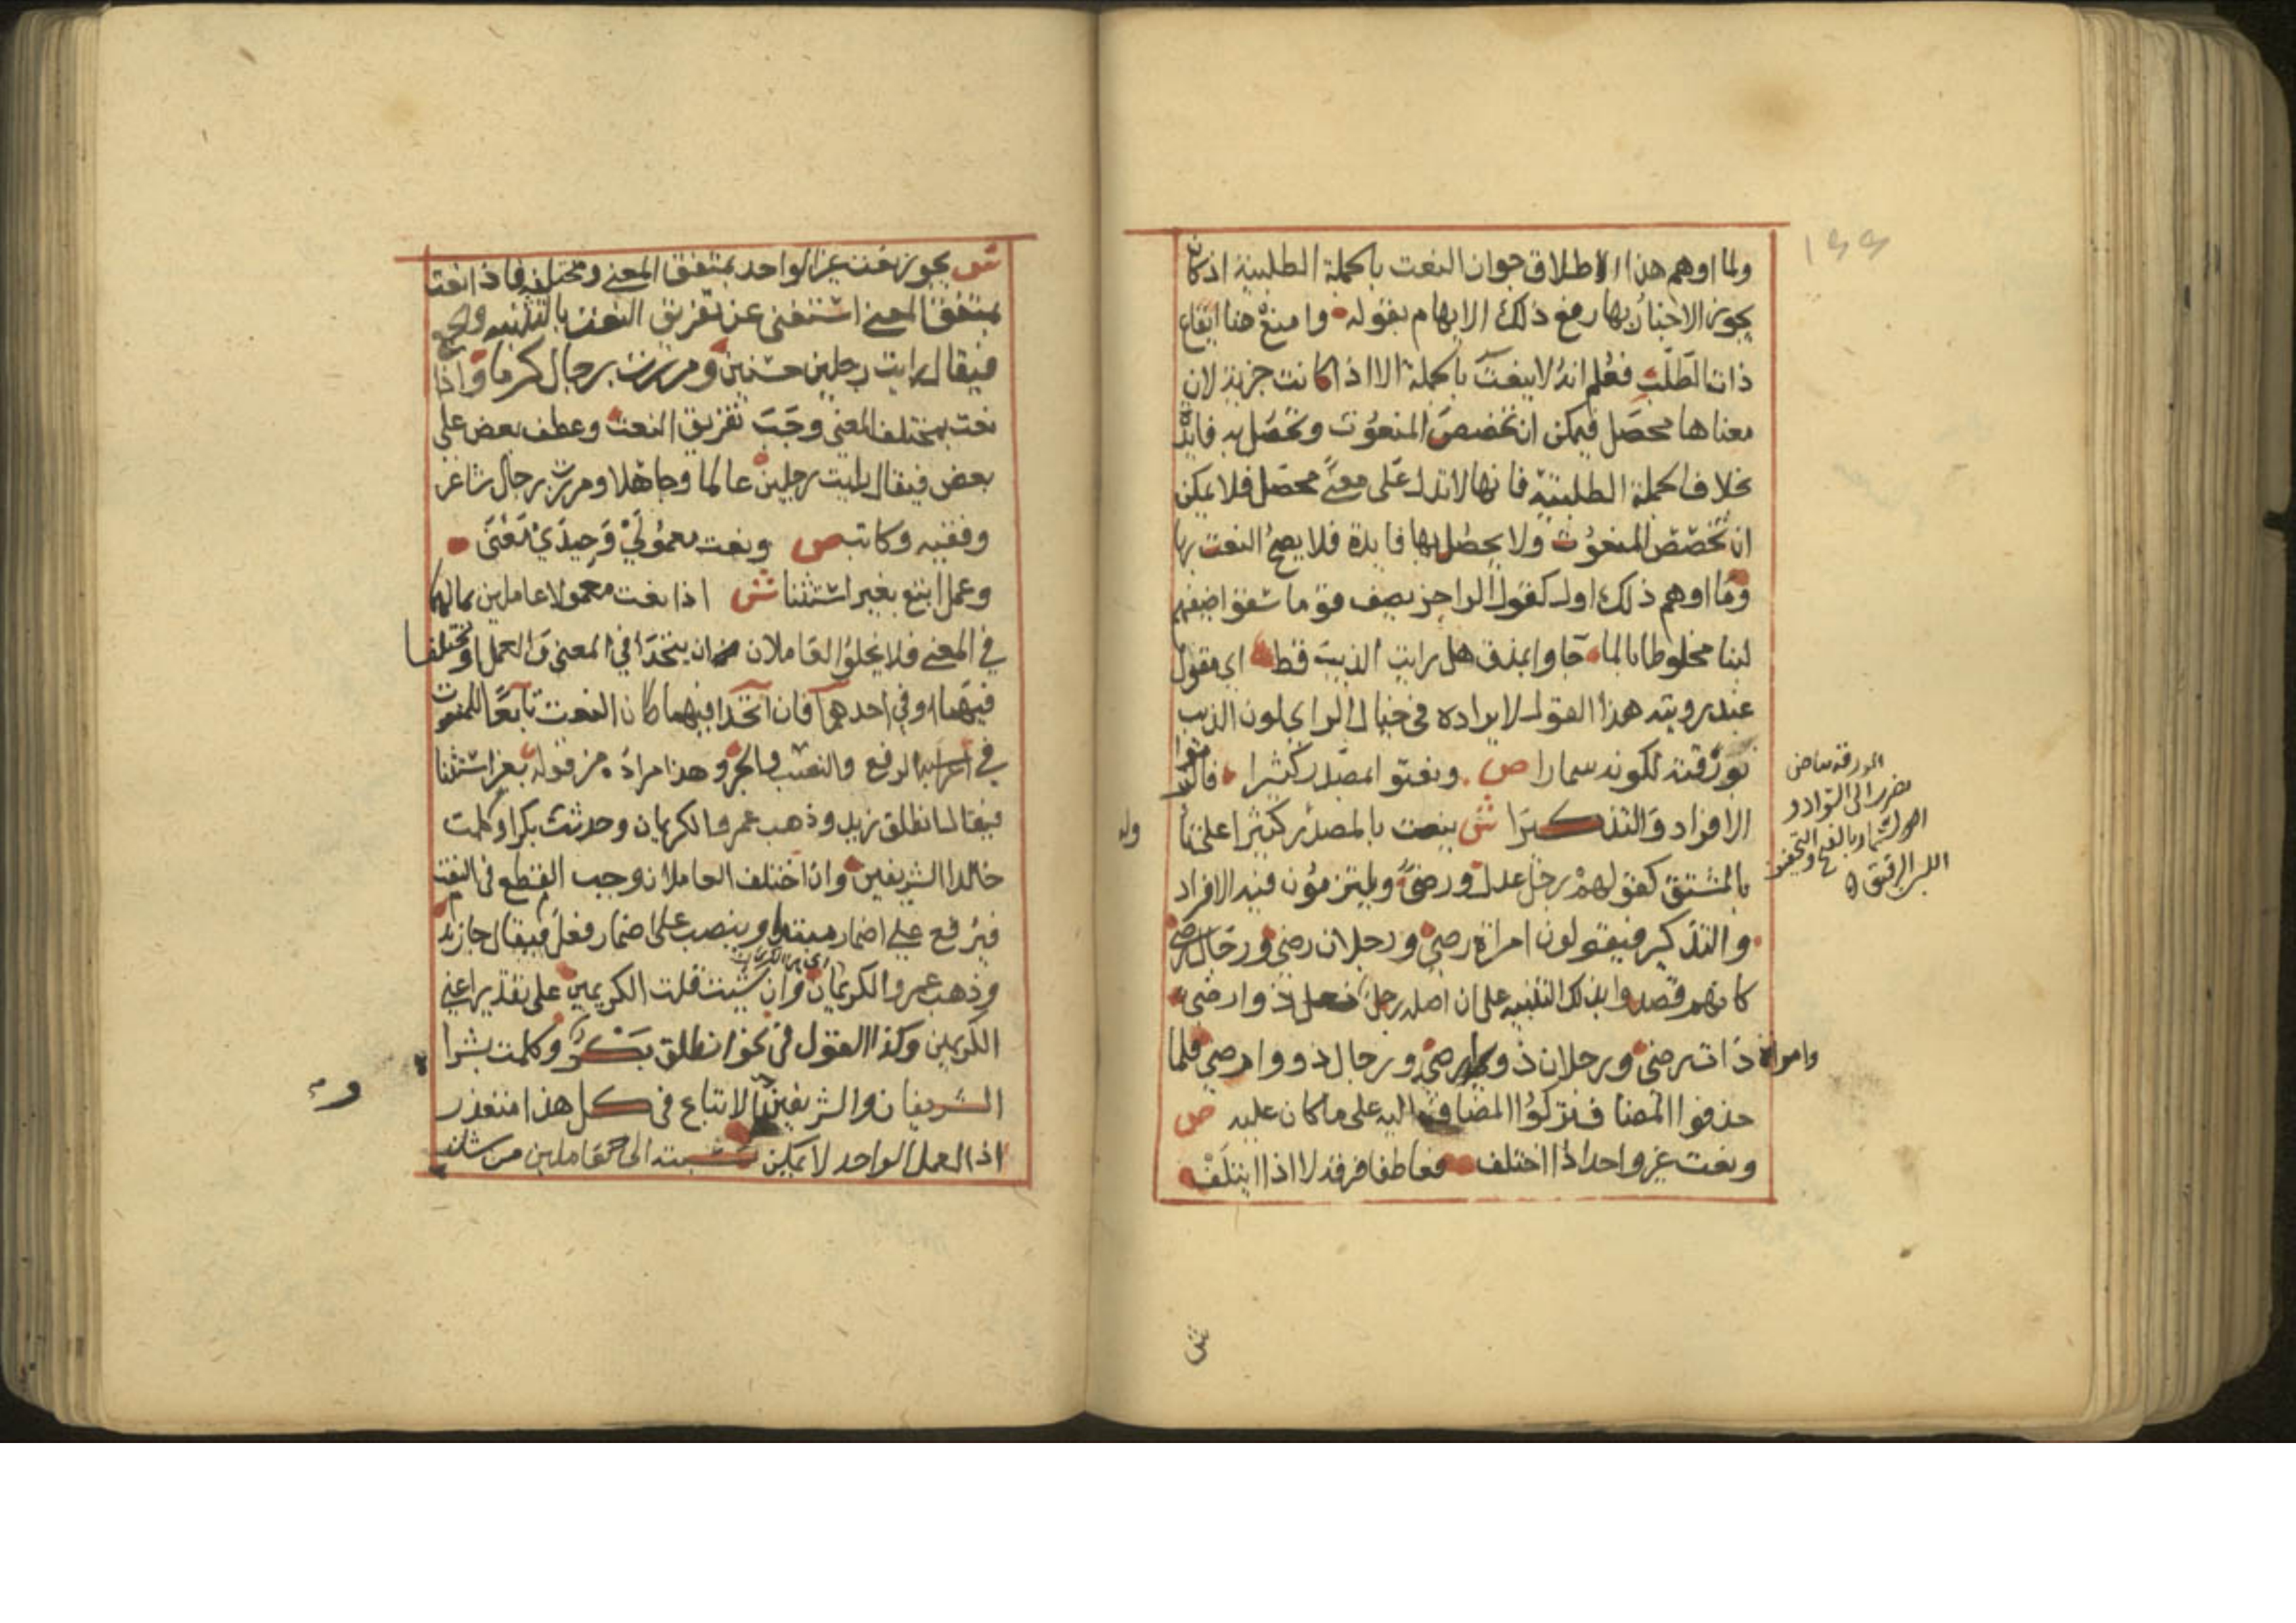 ١٩٩
ولما اوهم هذا الاطلاق جواز النعت بالجملة الطلبية اذ كان
يجوز الاخبار بها رفع ذلك الابهام بقوله وامنع هنا ايقاع
ذات الطلب فعلم انه لا ينعت بالجملة الا اذا كانت خبرية لان
معناها محصل فيمكن ان تخصص المنعوت وتحصل به فايدة
بخلاف الجملة الطلبية فانها لا تدل على معنى محصل فلا يمكن
ان تخصص المنعوت ولا يحصل بها فايدة فلا يصح النعت بها
وما اوهم ذلك اول كقول الراجز يصف قوما سقوا ضيفهم
لبنا مخلوطا بالما جاوا بمذق هل رايت الذيب قط اي مقول
عند رويته هذا القول لايراده في خيال الراي لون الذيب
بورقته لكونه سمارا ص ونعتوا بمصدر كثيرا فالتزموا
الافراد والتذكيرا ش ينعت بالمصدر كثيرا على
بالمشتق كقولهم رجل عدل ورضى ويلتزمون فيه الافراد
والتذكير فيقولون امراة رضى ورجلان رضى ورجال رضى
كانهم قصدوا بذلك التنبيه على ان اصله رجل ذو رضى
وامراة ذات رضى ورجلان ذوا رضى ورجال ذووا رضى فلما
حذفوا المضاف تركوا المضاف اليه على ما كان عليه ص
ونعت غير واحد اذا اختلف فعاطفا فرقه لا اذا ايتلف
الورقة بياض
يضرب الى السواد و
السمار بالفتح والتخفيف
اللبن الرقيق
ش
ش يجوز نعت غير الواحد بمتفق المعنى ومختلفه فاذا نعت
بمتفق المعنى استغنى عن تفريق النعت بالتثنيه والجمع
فيقال رايت رجلين حسنين ومررت برجال كرما واذا
نعت بمختلف المعنى وجب تفريق النعت وعطف بعض على
بعض فيقال رايت رجلين عالما وجاهلا ومررت برجال شاعر
وفقيه وكاتب ص ونعت معمولي وحيدي معنى
وعمل اتبع بغير استثنا ش اذا نعت معمولا عاملين بمالهما
في المعنى فلا يخلوا العاملان من ان يتحدا في المعنى والعمل او يختلفا
فيهما او في احدهما فان اتحدا فيهما كان النعت تابعا للمنعوت
في اعرابه الرفع والنصب والجر وهذا مراده من قوله بغير استثنا
فيقال انطلق زيد وذهب عمرو الكريمان وحدثت بكرا وكلمت
خالدا الشريفين وان اختلف العاملان وجب القطع في النعت
فيرفع على اضمار مبتدا او ينصب على اضمار فعل فيقال جا زيد
وذهب عمرو الكريمان وان شيت قلت الكريمين على تقدير اعني
الكريمين وكذا القول في نحو انطلق بكر وكلمت بشرا
الشريفان والشريفين الاتباع في كل هذا متعذر
اذ العمل الواحد لا يمكن نسبته الى عاملين من شانه